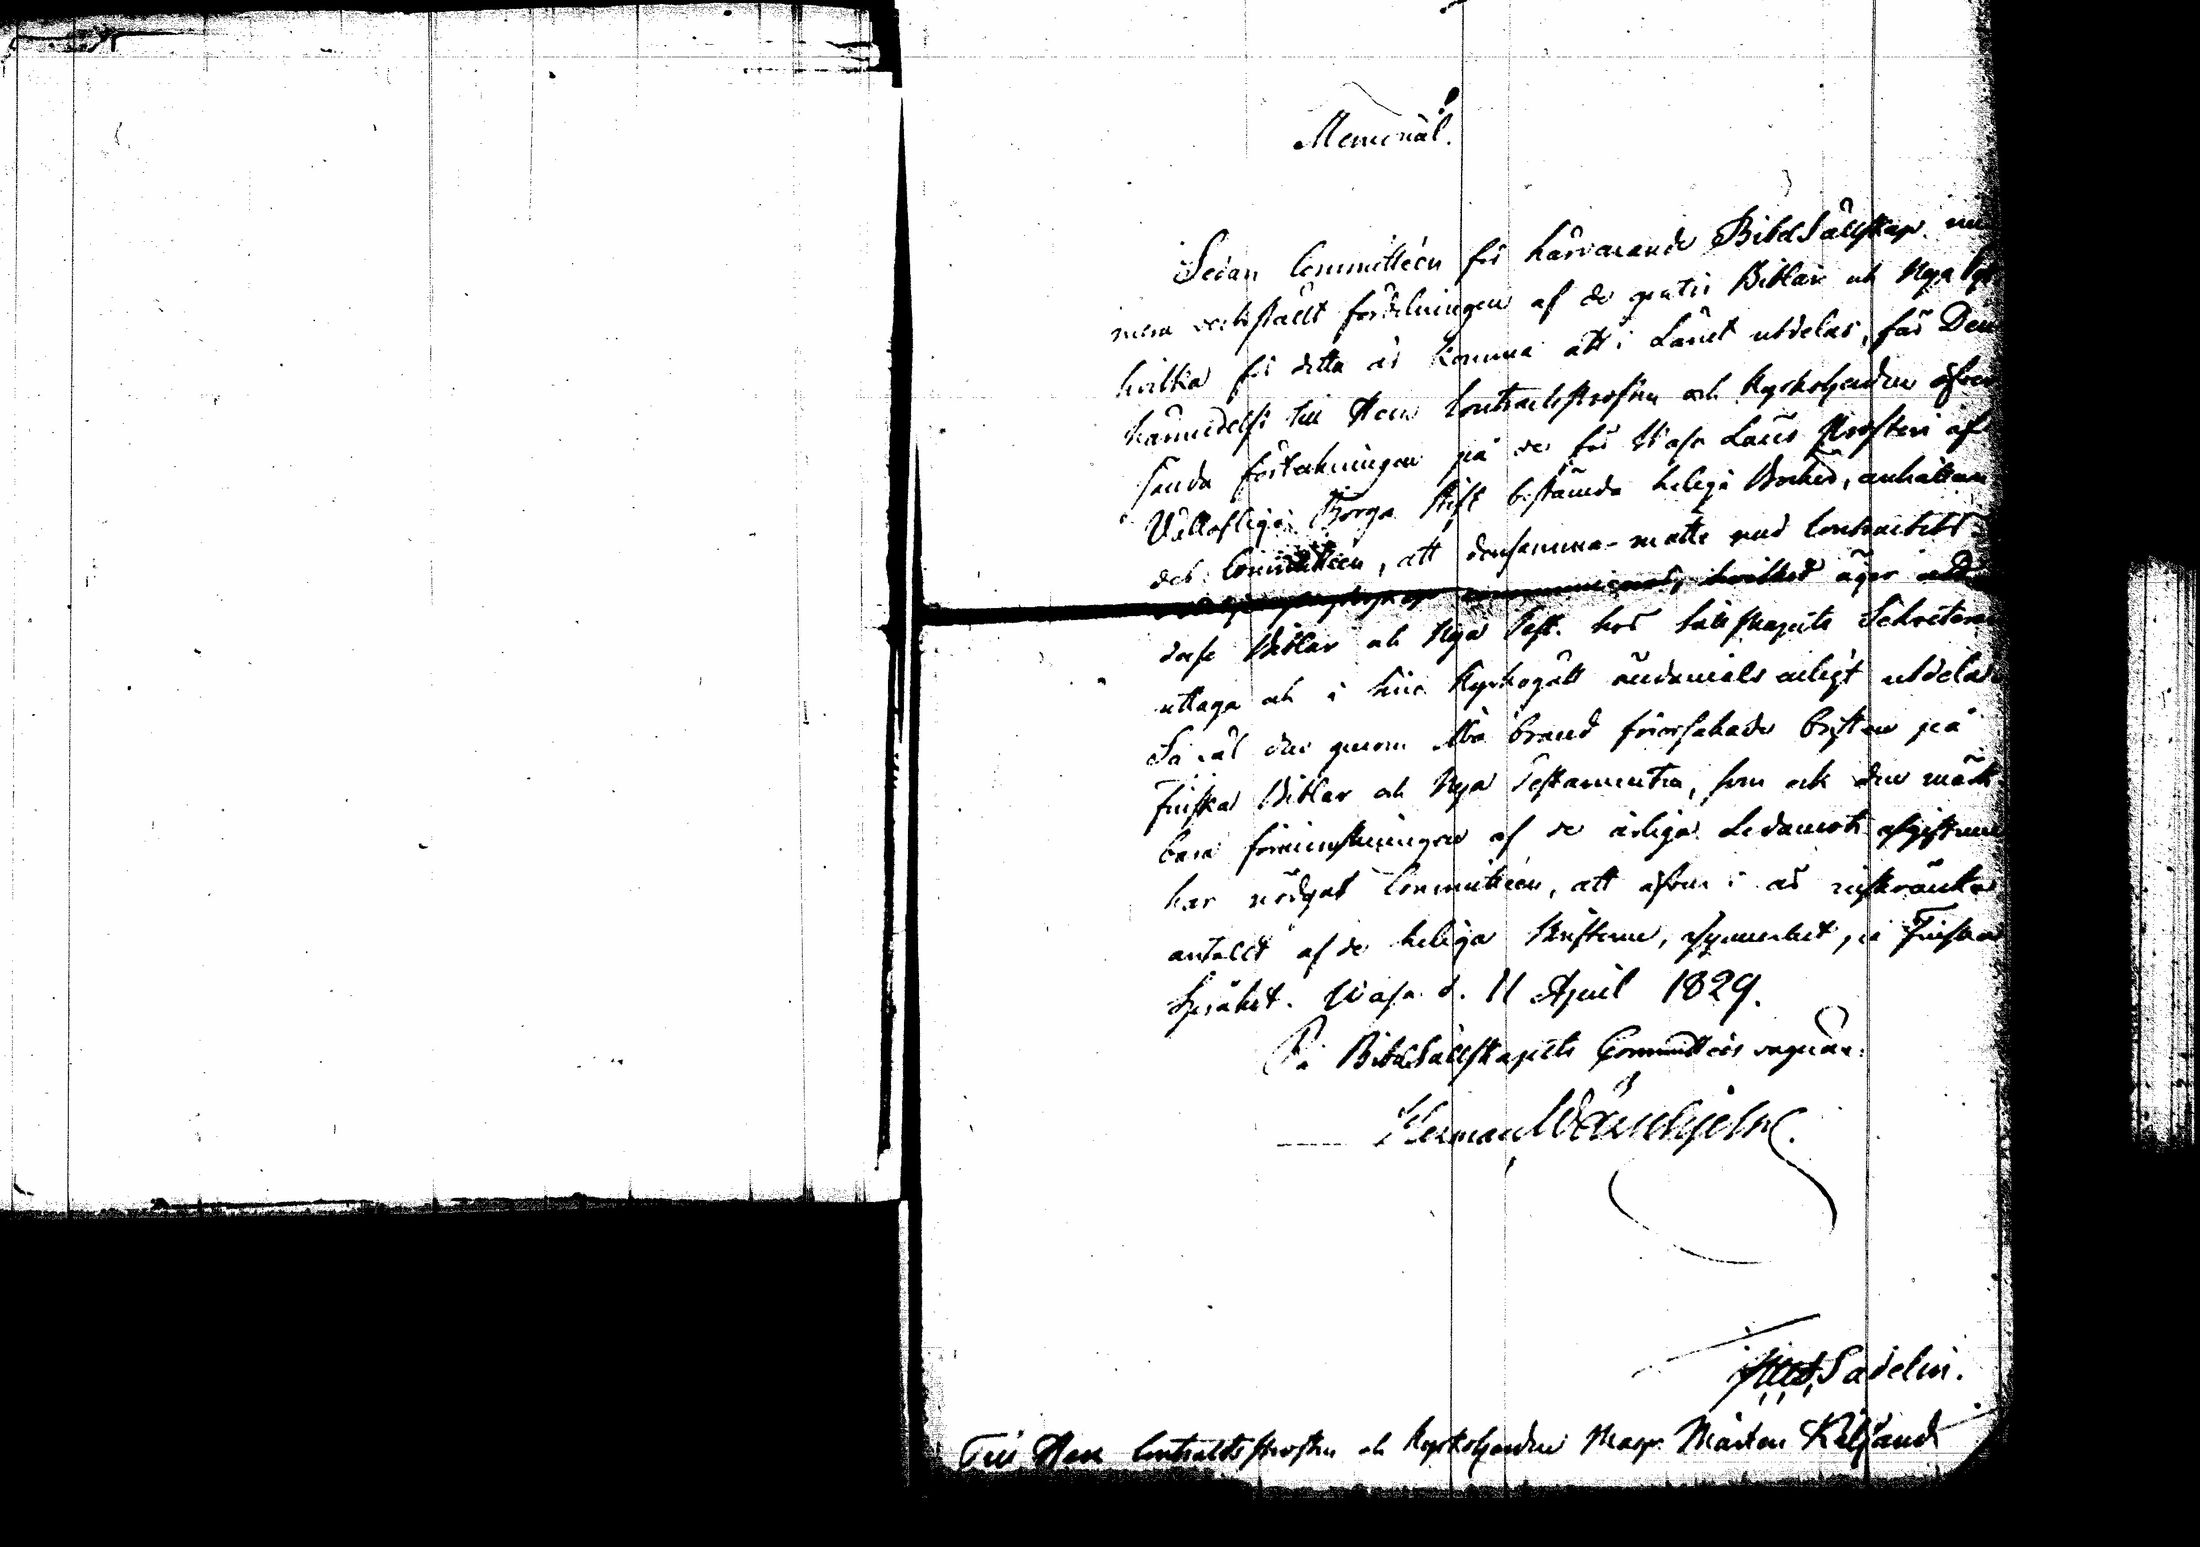 Memorial.
Sedan Committéen för härvarande BibelSällskap nu
mera verkställt fördelningen af de gratis Biblar och Nya Test
hvilka för detta år komma att i Länet utdelas, får Den
kännedels till Herr Contractsprosten och Kyrkoherden öfver
sända förteckningen på de för Wasa Läns Prosteri af
Vällofliga Borgå Stift bestämda heliga Böcker, anhållan
des Committéen, att densamma måtte med Contractets
communiceras, hvilket äger att
desse Biblar och Nya Test. hos Sällskapets Sekreterare
uttaga och i sine Kyrkogäll ändamåls enligt utdela.
Så väl den genom Åbo brand förorsakade bristen på
Finska Biblar och Nya Testamenten, som ock den märk-
bara förminskningen af de årliga Ledamots afgifterne
har nödgat Committéen, att äfven i år inskränka
antalet af de heliga Skrifterne, i synnerhet på Finska
Språket. Wasa d. 11 April 1829.
På BibelSällskapets Committées vägnar:
Herman Wärnhjelm.
Sadelin.
Till Herr Contractsprosten och Kyrkoherden Magr. Mårten